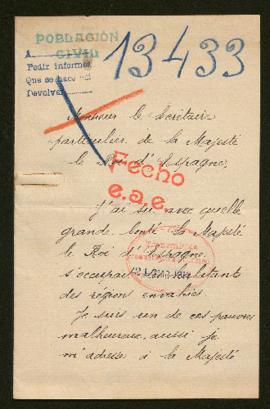 POBLACIÓN
CIVIL
13433
A
Pedir informes
Que se hace
Devolver
Monsieur le Secrétaire
particulier de la Majesté
le Roi d'Espagne,
Fecho
e.a.e.
J'ai su avec quelle
grande bonté la Majesté
le Roi d'Espagne
s'occupait des habitants
des région envahies
Je suis un de ces pauvres
malheureux, aussi je
m'adresse à la Majesté